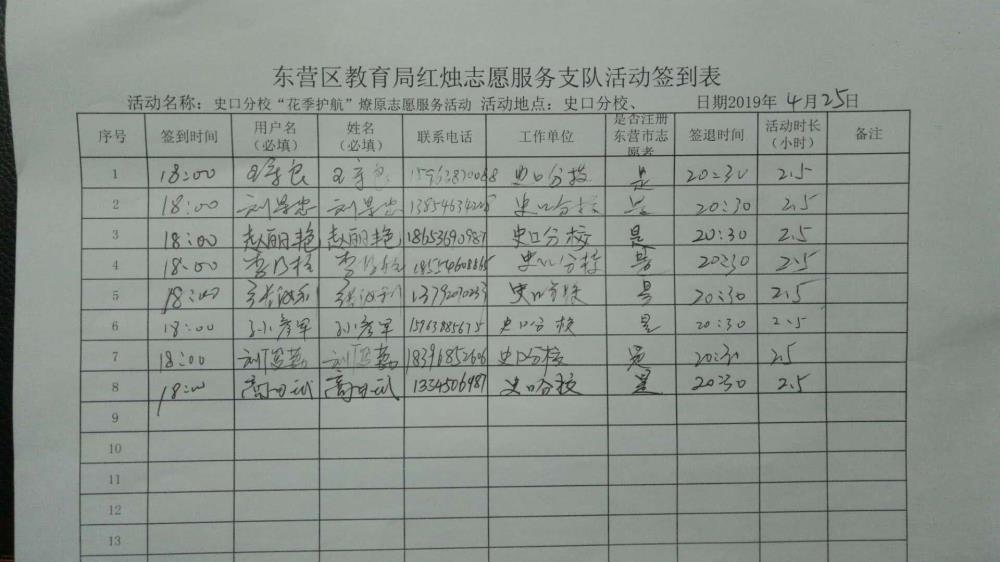 东营区教育局红烛志愿服务支队活动签到表
活动名称：史口分校“花季护航”燎原志愿服务活动 活动地点：史口分校、 日期2019年 4月25日
序号 签到时间 用户名（必填） 姓名（必填） 联系电话 工作单位 是否注册东营市志愿者 签退时间 活动时长（小时） 备注
1 18:00 史口分校 是 20:30 2.5
2 18:00 史口分校 是 20:30 2.5
3 18:00 赵丽艳 赵丽艳 18653690987 史口分校 是 20:30 2.5
4 18:00 史口分校 是 20:30 2.5
5 18:00 史口分校 是 20:30 2.5
6 18:00 孙彦军 孙彦军 15963885675 史口分校 是 20:30 2.5
7 18:00 18396852606 史口分校 是 20:30 2.5
8 18:00 史口分校 是 20:30 2.5
9
10
11
12
13